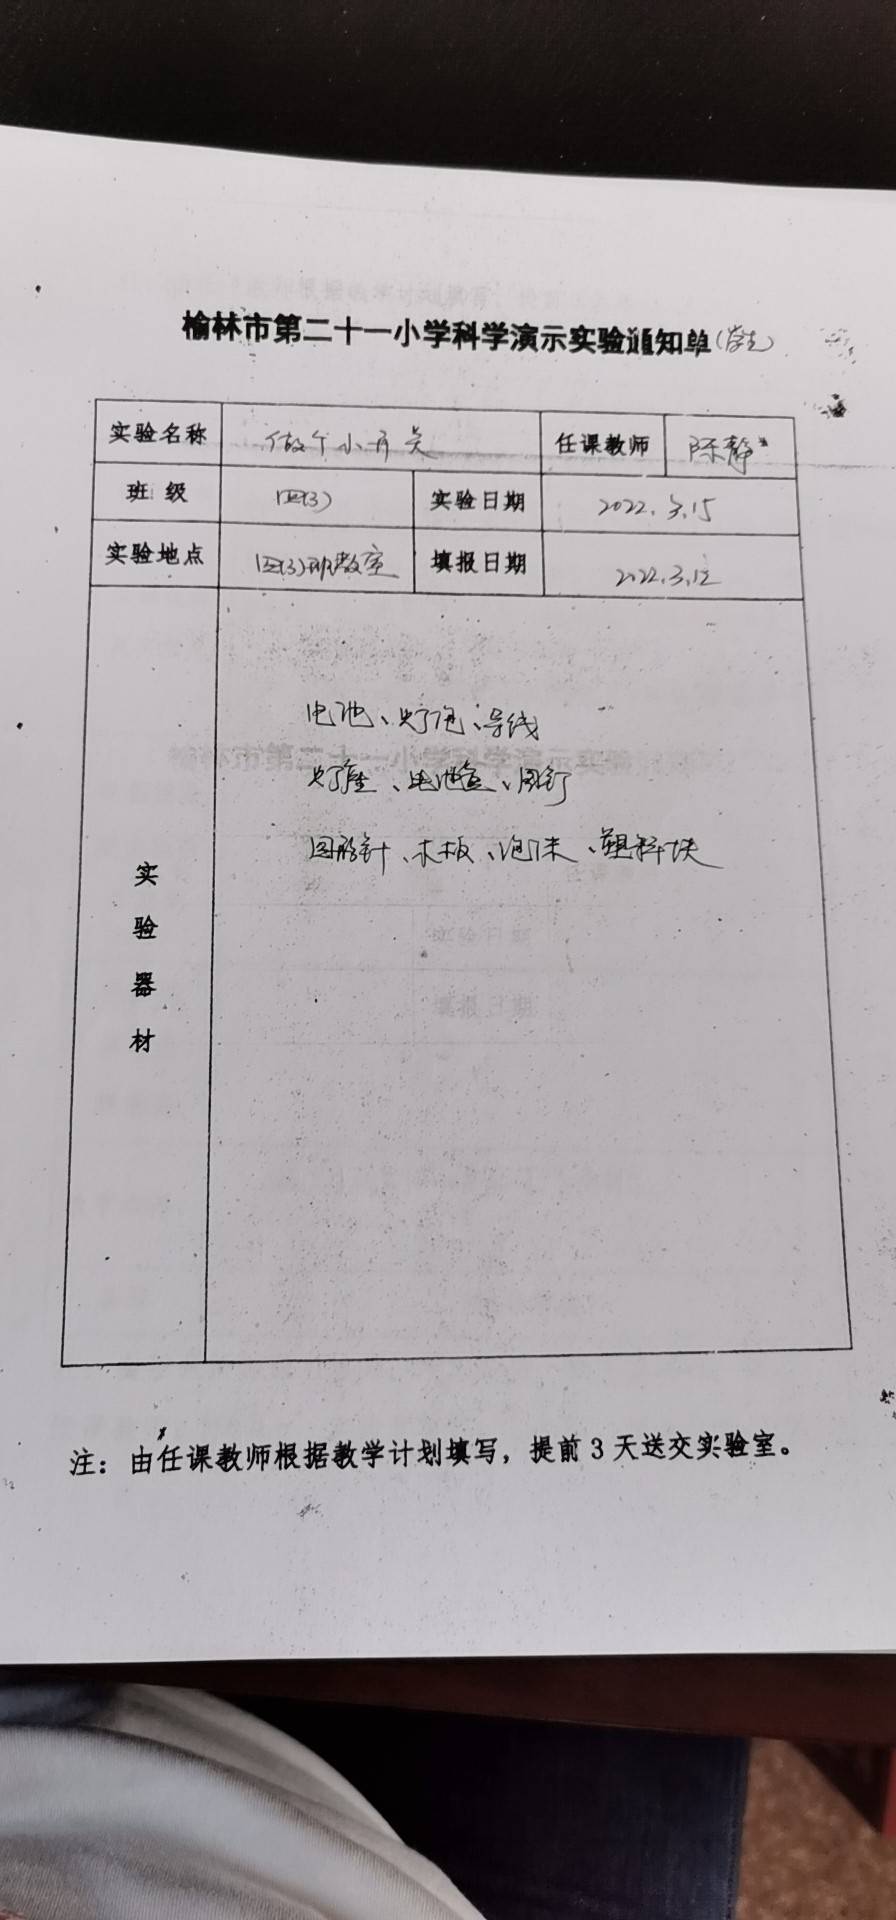 榆林市第二十一小学科学演示实验通知单(学生)
实验名称 做个小开关 任课教师 陈静
班级 四(3) 实验日期 2022.3.15
实验地点 四(3)班教室 填报日期 2022.3.12
实验器材
电池、灯泡、导线
灯座、电池盒、图钉
回形针、木板、泡沫、塑料块
注：由任课教师根据教学计划填写，提前3天送交实验室。